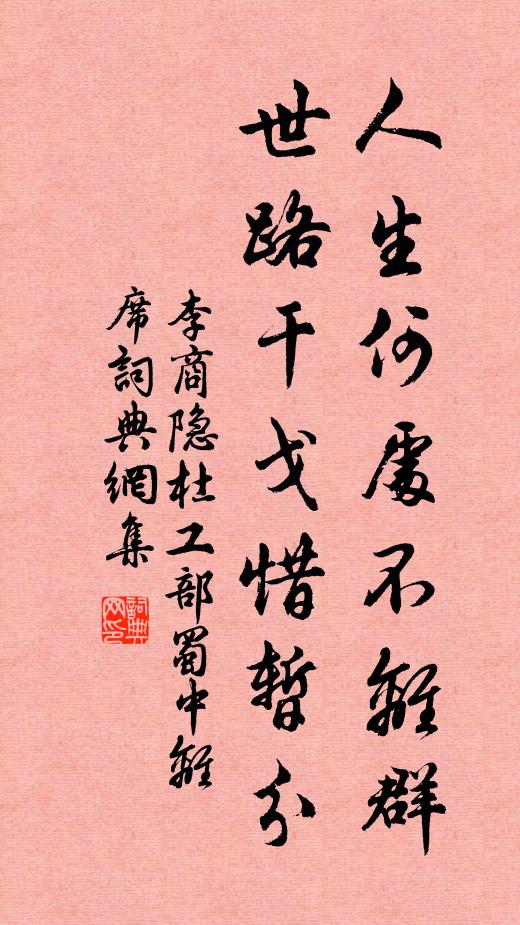 人生何處不離群
世路干戈惜暫分
李商隐杜工部蜀中離
席詞典網集
詞典網印